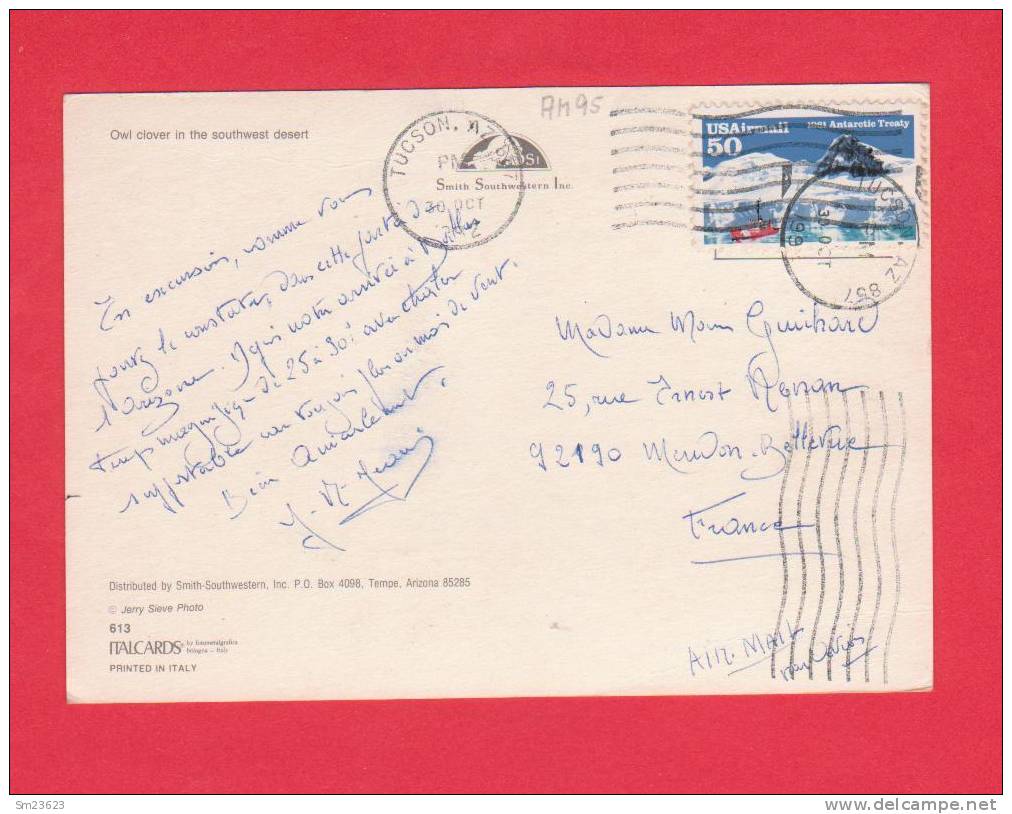 AM95
Owl clover in the southwest desert
TUCSON, AZ 857
PM
30 OCT
Smith Southwestern Inc.
USAirmail
50
1991 Antarctic Treaty
TUCSON AZ 857
30 OCT
En excursion, comme vous
pouvez le constater, dans cette partie de
l'Arizona. Depuis notre arrivée à
temps magnifique de 25 à 30° avec chaleur
supportable car toujours plus ou moins de vent.
Bien Amicalement.
Madame Guichard
25, rue Ernest Renan
92190 Meudon-Bellevue
France
AIR-MAIL
par avion
Distributed by Smith-Southwestern, Inc. P.O. Box 4098, Tempe, Arizona 85285
© Jerry Sieve Photo
613
ITALCARDS by fotometalgrafica
bologna - Italy
PRINTED IN ITALY
Sm23623
www.delcampe.net